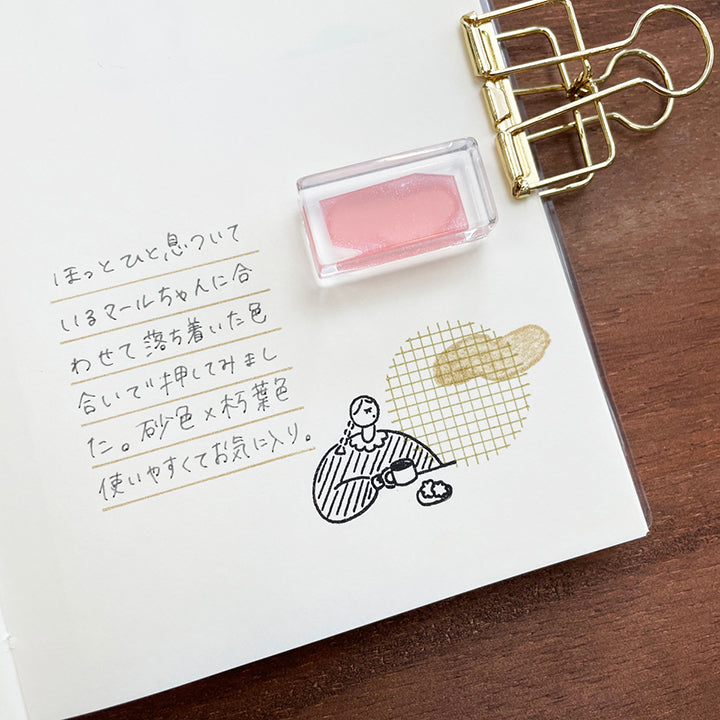 ほっとひと息ついて
いるマールちゃんに合
わせて落ち着いた色
合いで押してみまし
た。砂色×朽葉色
使いやすくてお気に入り。